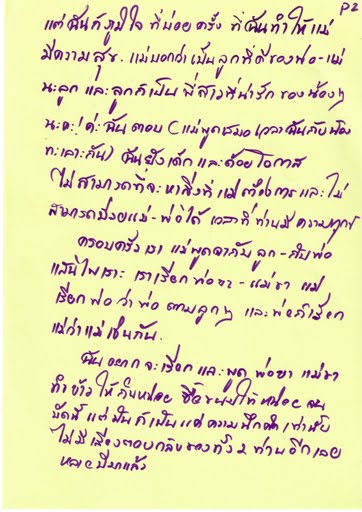 P2
แต่ฉันก็ภูมิใจ ที่บ่อยครั้ง ที่ฉันทำให้แม่
มีความสุข. แม่บอกว่าเป็นลูกที่ดีของพ่อ-แม่
นะลูก และลูกก็เป็น พี่สาวที่น่ารัก ของน้องๆ
นะคะ! ค่ะ ฉัน ตอบ (แม่พูดเสมอ เวลาฉันกับน้อง
ทะเลาะกัน) ฉันยังเด็ก และด้อยโอกาส
ไม่สามารถที่จะ หาสิ่งที่ แม่ต้องการ และ ไม่
สามารถช่วยแม่-พ่อได้ เวลาที่ท่านมี ความทุกข์
ครอบครัว เรา แม่พูดจากับ ลูก-กับพ่อ
แม่ไพเราะ เราเรียก พ่อขา-แม่ขา แม่
เรียก พ่อ ว่า พ่อ ตามลูกๆ และ พ่อก็เรียก
แม่ว่าแม่เช่นกัน.
ฉันอยาก จะเรียก และ พูด พ่อขา แม่ขา
ทำข้าว ให้ กินหน่อย ซื้อขนมให้หน่อย จน
บัดนี้ แต่ มันก็เป็น แค่ ความนึกคิด เท่านั้น
ไม่มี เสียงตอบกลับของทั้ง 2 ท่านอีกเลย
หลายปีมาแล้ว